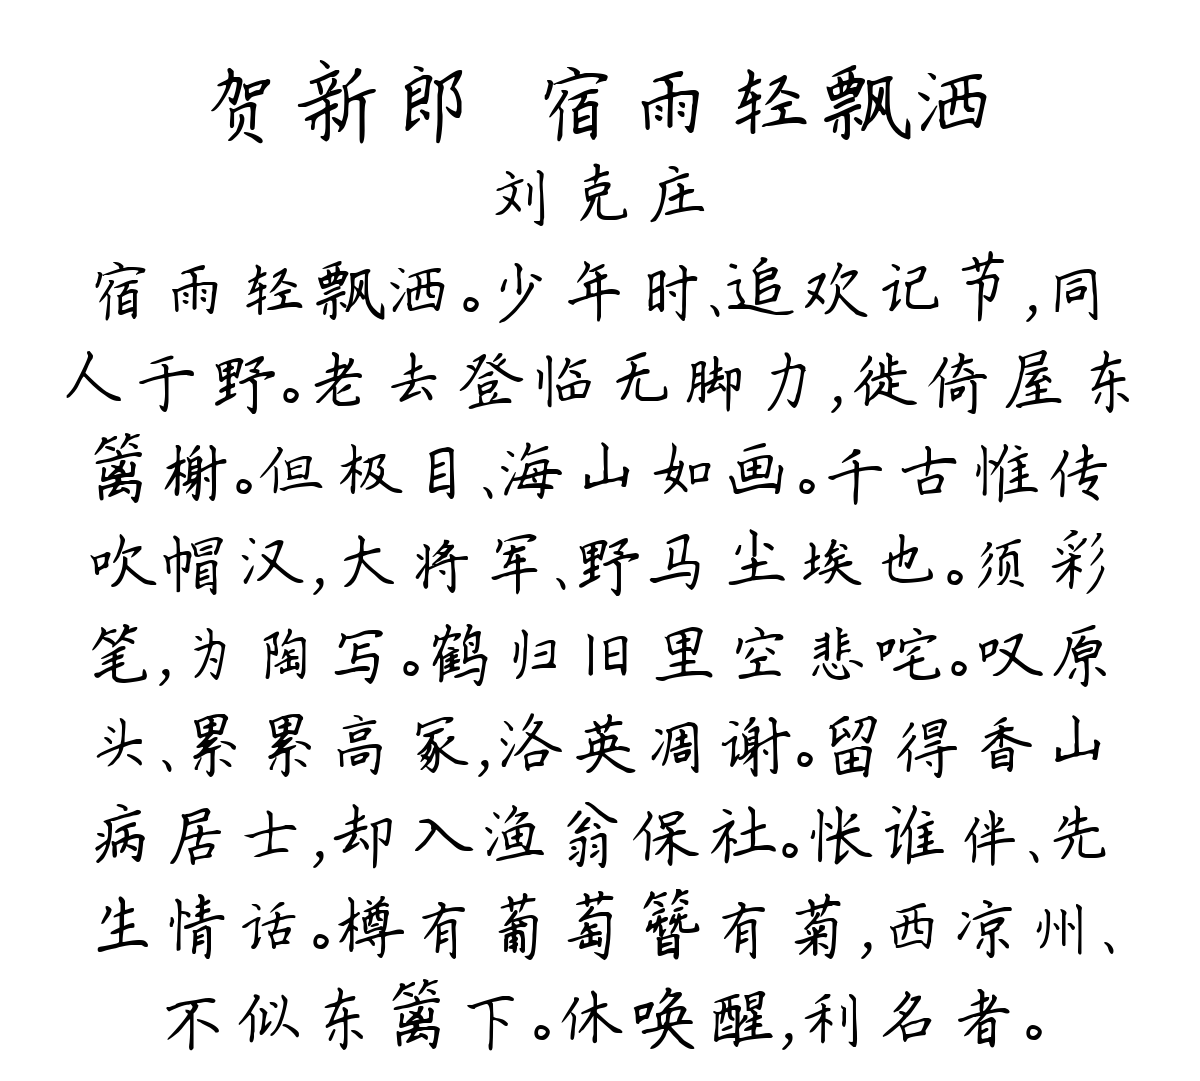 贺新郎 宿雨轻飘洒
刘克庄
宿雨轻飘洒。少年时、追欢记节,同
人于野。老去登临无脚力,徙倚屋东
篱榭。但极目、海山如画。千古惟传
吹帽汉,大将军、野马尘埃也。须彩
笔,为陶写。鹤归旧里空悲咤。叹原
头、累累高冢,洛英凋谢。留得香山
病居士,却入渔翁保社。怅谁伴、先
生情话。樽有葡萄簪有菊,西凉州、
不似东篱下。休唤醒,利名者。